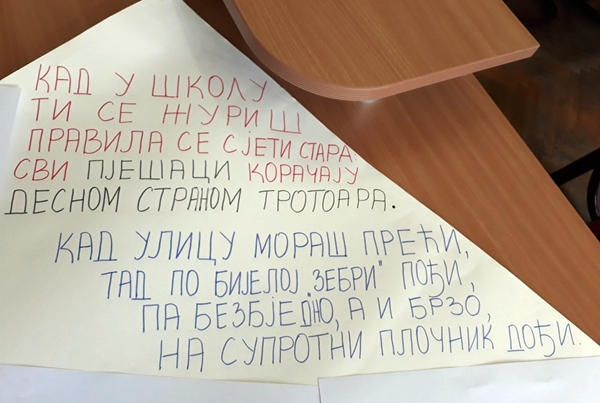 КАД У ШКОЛУ
ТИ СЕ ЖУРИШ
ПРАВИЛА СЕ СЈЕТИ СТАРА:
СВИ ПЈЕШАЦИ КОРАЧАЈУ
ДЕСНОМ СТРАНОМ ТРОТОАРА.
КАД УЛИЦУ МОРАШ ПРЕЋИ,
ТАД ПО БИЈЕЛОЈ „ЗЕБРИ" ПОЂИ,
ПА БЕЗБЈЕДНО, А И БРЗО,
НА СУПРОТНИ ПЛОЧНИК ДОЂИ.